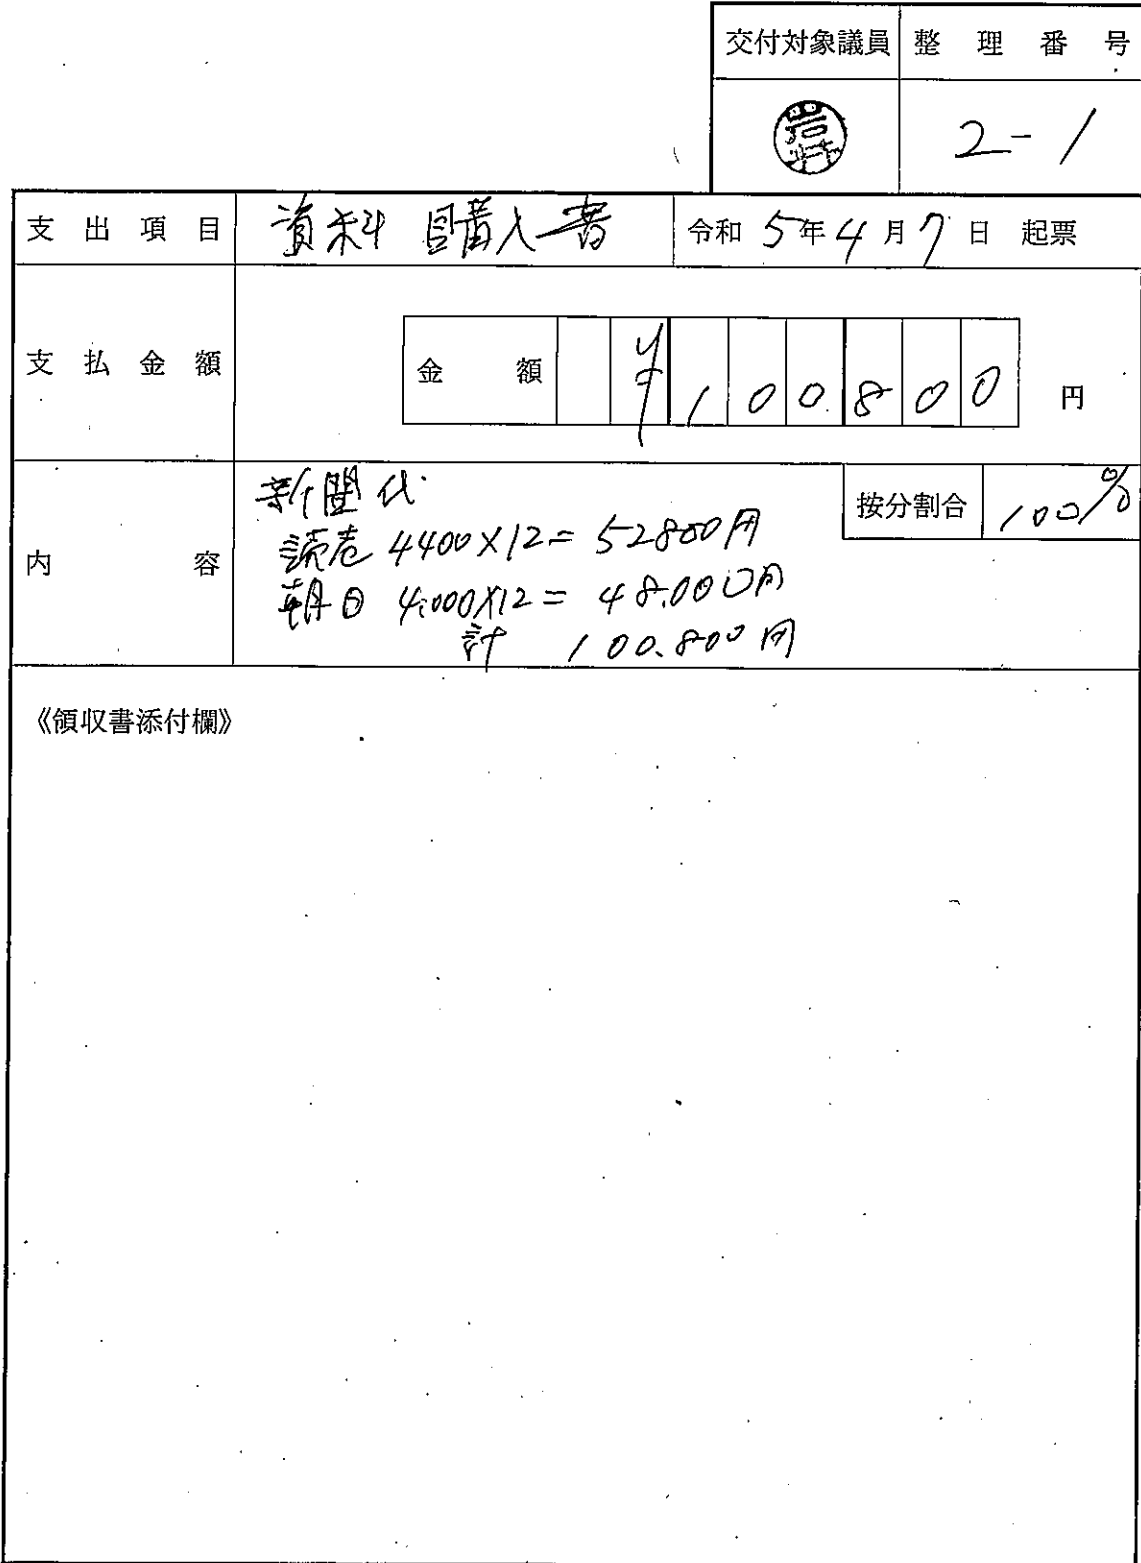 交付対象議員 整理番号
岩井 2-1
支出項目 資料購入書 令和5年4月7日 起票
支払金額 金額 ¥100.800 円
新聞代 按分割合 100%
読売 4400×12=52800円
内容
朝日 4.000×12=48.000円
計 100.800円
《領収書添付欄》